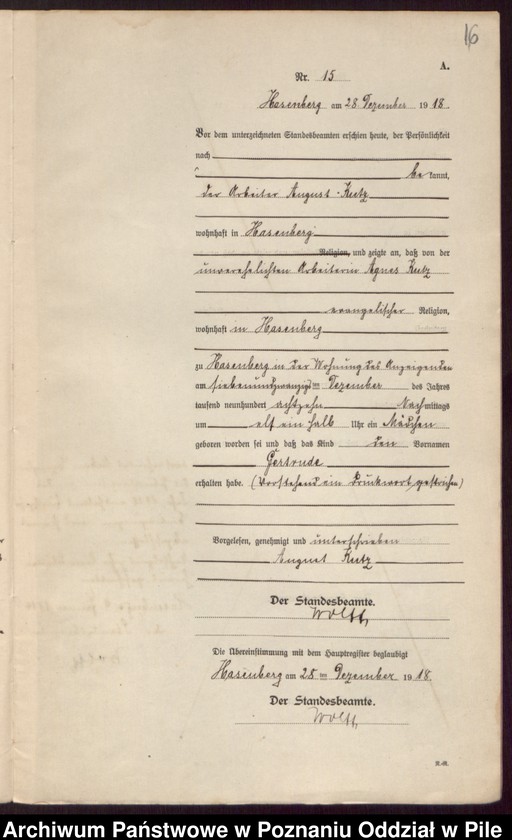 16
A.
Nr. 15
Hasenberg am 28. Dezember 1918.
Vor dem unterzeichneten Standesbeamten erschien heute, der Persönlichkeit
nach
be kannt,
der Arbeiter August Kutz
wohnhaft in Hasenberg
Religion, und zeigte an, daß von der
unverehelichten Arbeiterin Agnes Kutz
evangelischer Religion,
wohnhaft in Hasenberg
zu Hasenberg in der Wohnung des Anzeigenden
am siebenundzwanzigsten Dezember des Jahres
tausend neunhundert achtzehn Nachmittags
um elf ein halb Uhr ein Mädchen
geboren worden sei und daß das Kind den Vornamen
Gertrude
erhalten habe. (Vorstehend ein Druckwort gestrichen)
Vorgelesen, genehmigt und unterschrieben
August Kutz
Der Standesbeamte.
Wolff
Die Übereinstimmung mit dem Hauptregister beglaubigt
Hasenberg am 28ten Dezember 1918.
Der Standesbeamte.
Wolff
Archiwum Państwowe w Poznaniu Oddział w Pile